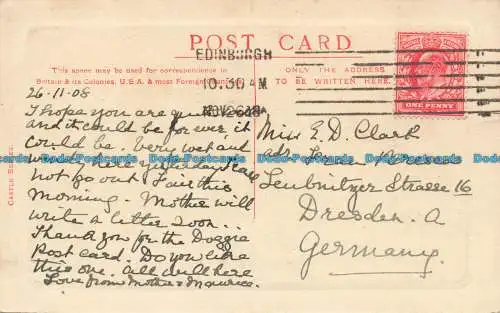 POST CARD
EDINBURGH
10.30 AM
NOV 26 08
This space may be used for correspondence in
Britain & its Colonies, U.S.A. & most Foreign
ONLY THE ADDRESS
TO BE WRITTEN HERE.
ONE PENNY
CASTLE SERIES
26-11-08
I hope you are
and it could be for we it
could be. Very wet and
not go out Fair this
Morning. Mother will
write a letter soon.
Thank you for the Doggie
Post card. Do you like
this one. all well here
Love from Mother & Maurice.
Miss E. D. Clark
Leubnitzer Strasse 16
Dresden. A
Germany.
Postcards